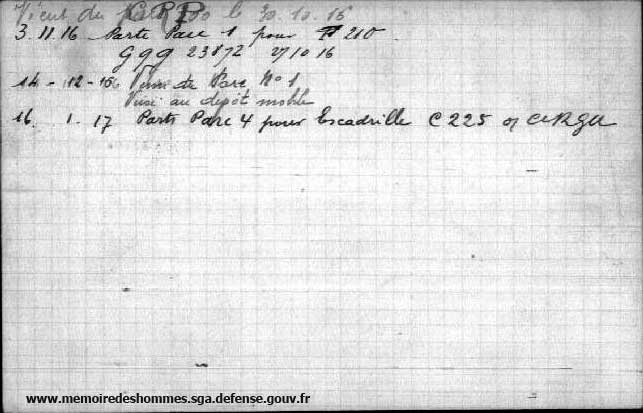 Vient du GPP le 30.10.16
3.11.16 Parti Parc 1 pour F 210
G 99 23872 27/10 16
14 - 12 - 16 Venu de Parc No 1
Visé au dépôt mobile
16. 1. 17 Parti Parc 4 pour Escadrille C 225
www.memoiredeshommes.sga.defense.gouv.fr